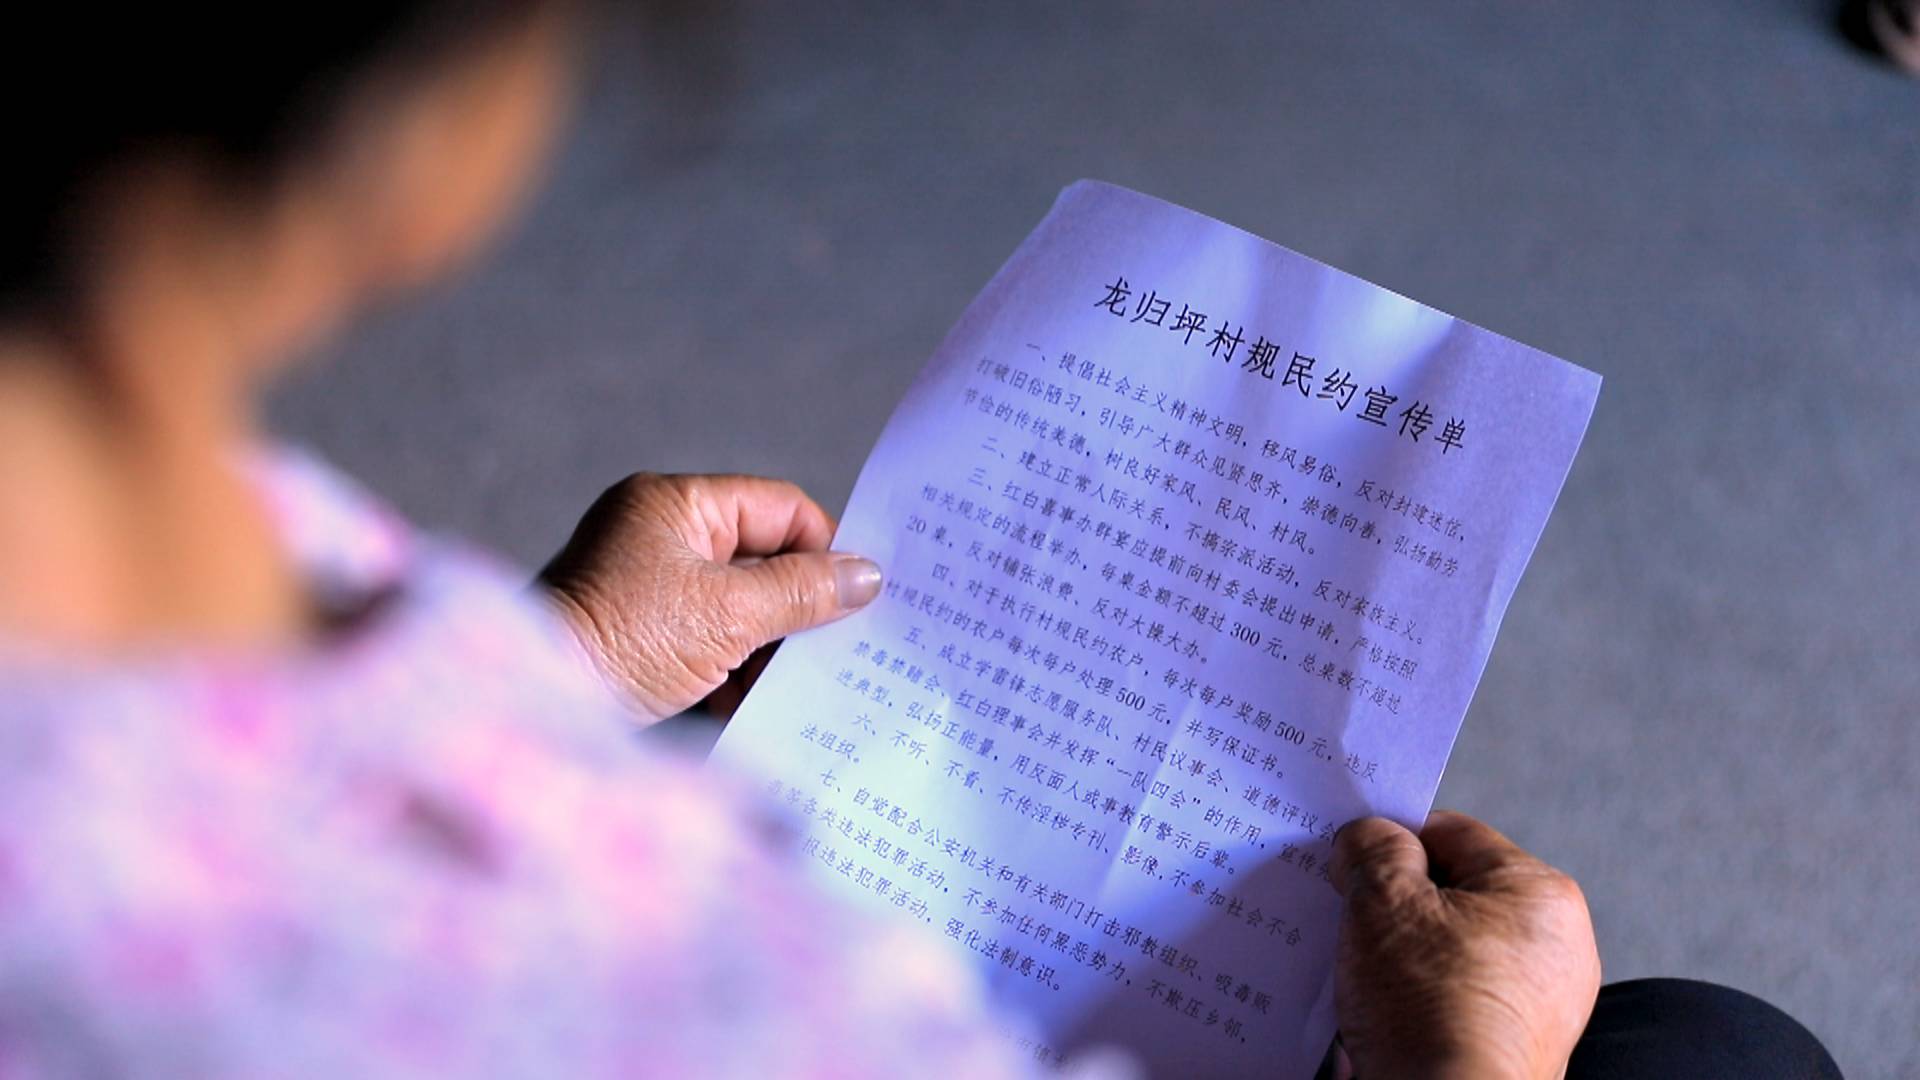 龙归坪村规民约宣传单
一、提倡社会主义精神文明，移风易俗，反对封建迷信，
打破旧俗陋习，引导广大群众见贤思齐，崇德向善，弘扬勤劳
节俭的传统美德，树良好家风、民风、村风。
二、建立正常人际关系，不搞宗派活动，反对家族主义。
三、红白喜事办群宴应提前向村委会提出申请，严格按照
相关规定的流程举办，每桌金额不超过300元，总桌数不超过
20桌，反对铺张浪费、反对大操大办。
四、对于执行村规民约农户，每次每户奖励500元，违反
村规民约的农户每次每户处理500元，并写保证书。
五、成立学雷锋志愿服务队、村民议事会、道德评议会
禁毒禁赌会、红白理事会并发挥“一队四会”的作用，宣传先
进典型，弘扬正能量，用反面人或事教育警示后辈。
六、不听、不看、不传淫秽专刊、影像，不参加社会不合
法组织。
七、自觉配合公安机关和有关部门打击邪教组织、吸毒贩
毒等各类违法犯罪活动，不参加任何黑恶势力，不欺压乡邻，
报违法犯罪活动，强化法制意识。